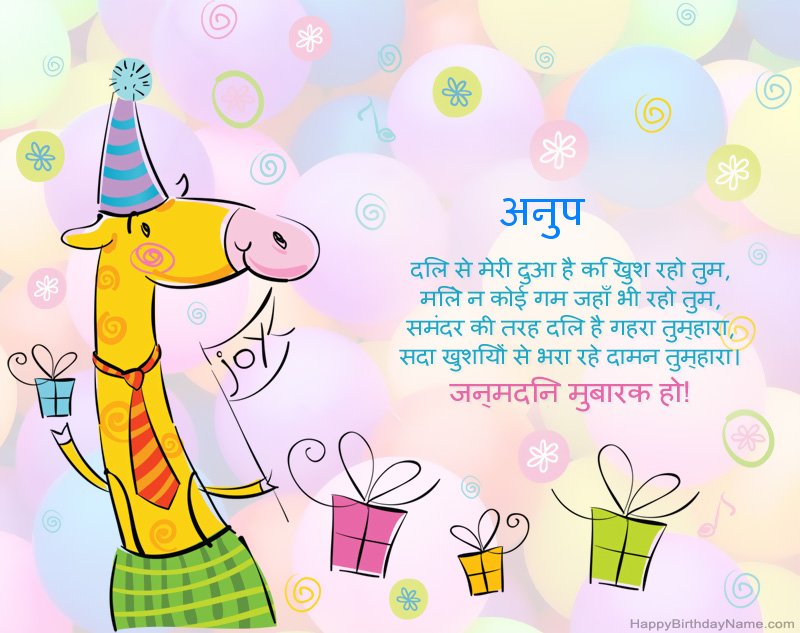 अनुप
दिल से मेरी दुआ है कि खुश रहो तुम,
मिले न कोई गम जहाँ भी रहो तुम,
समंदर की तरह दिल है गहरा तुम्हारा,
सदा खुशियों से भरा रहे दामन तुम्हारा।
जन्मदिन मुबारक हो!
joy
HappyBirthdayName.com